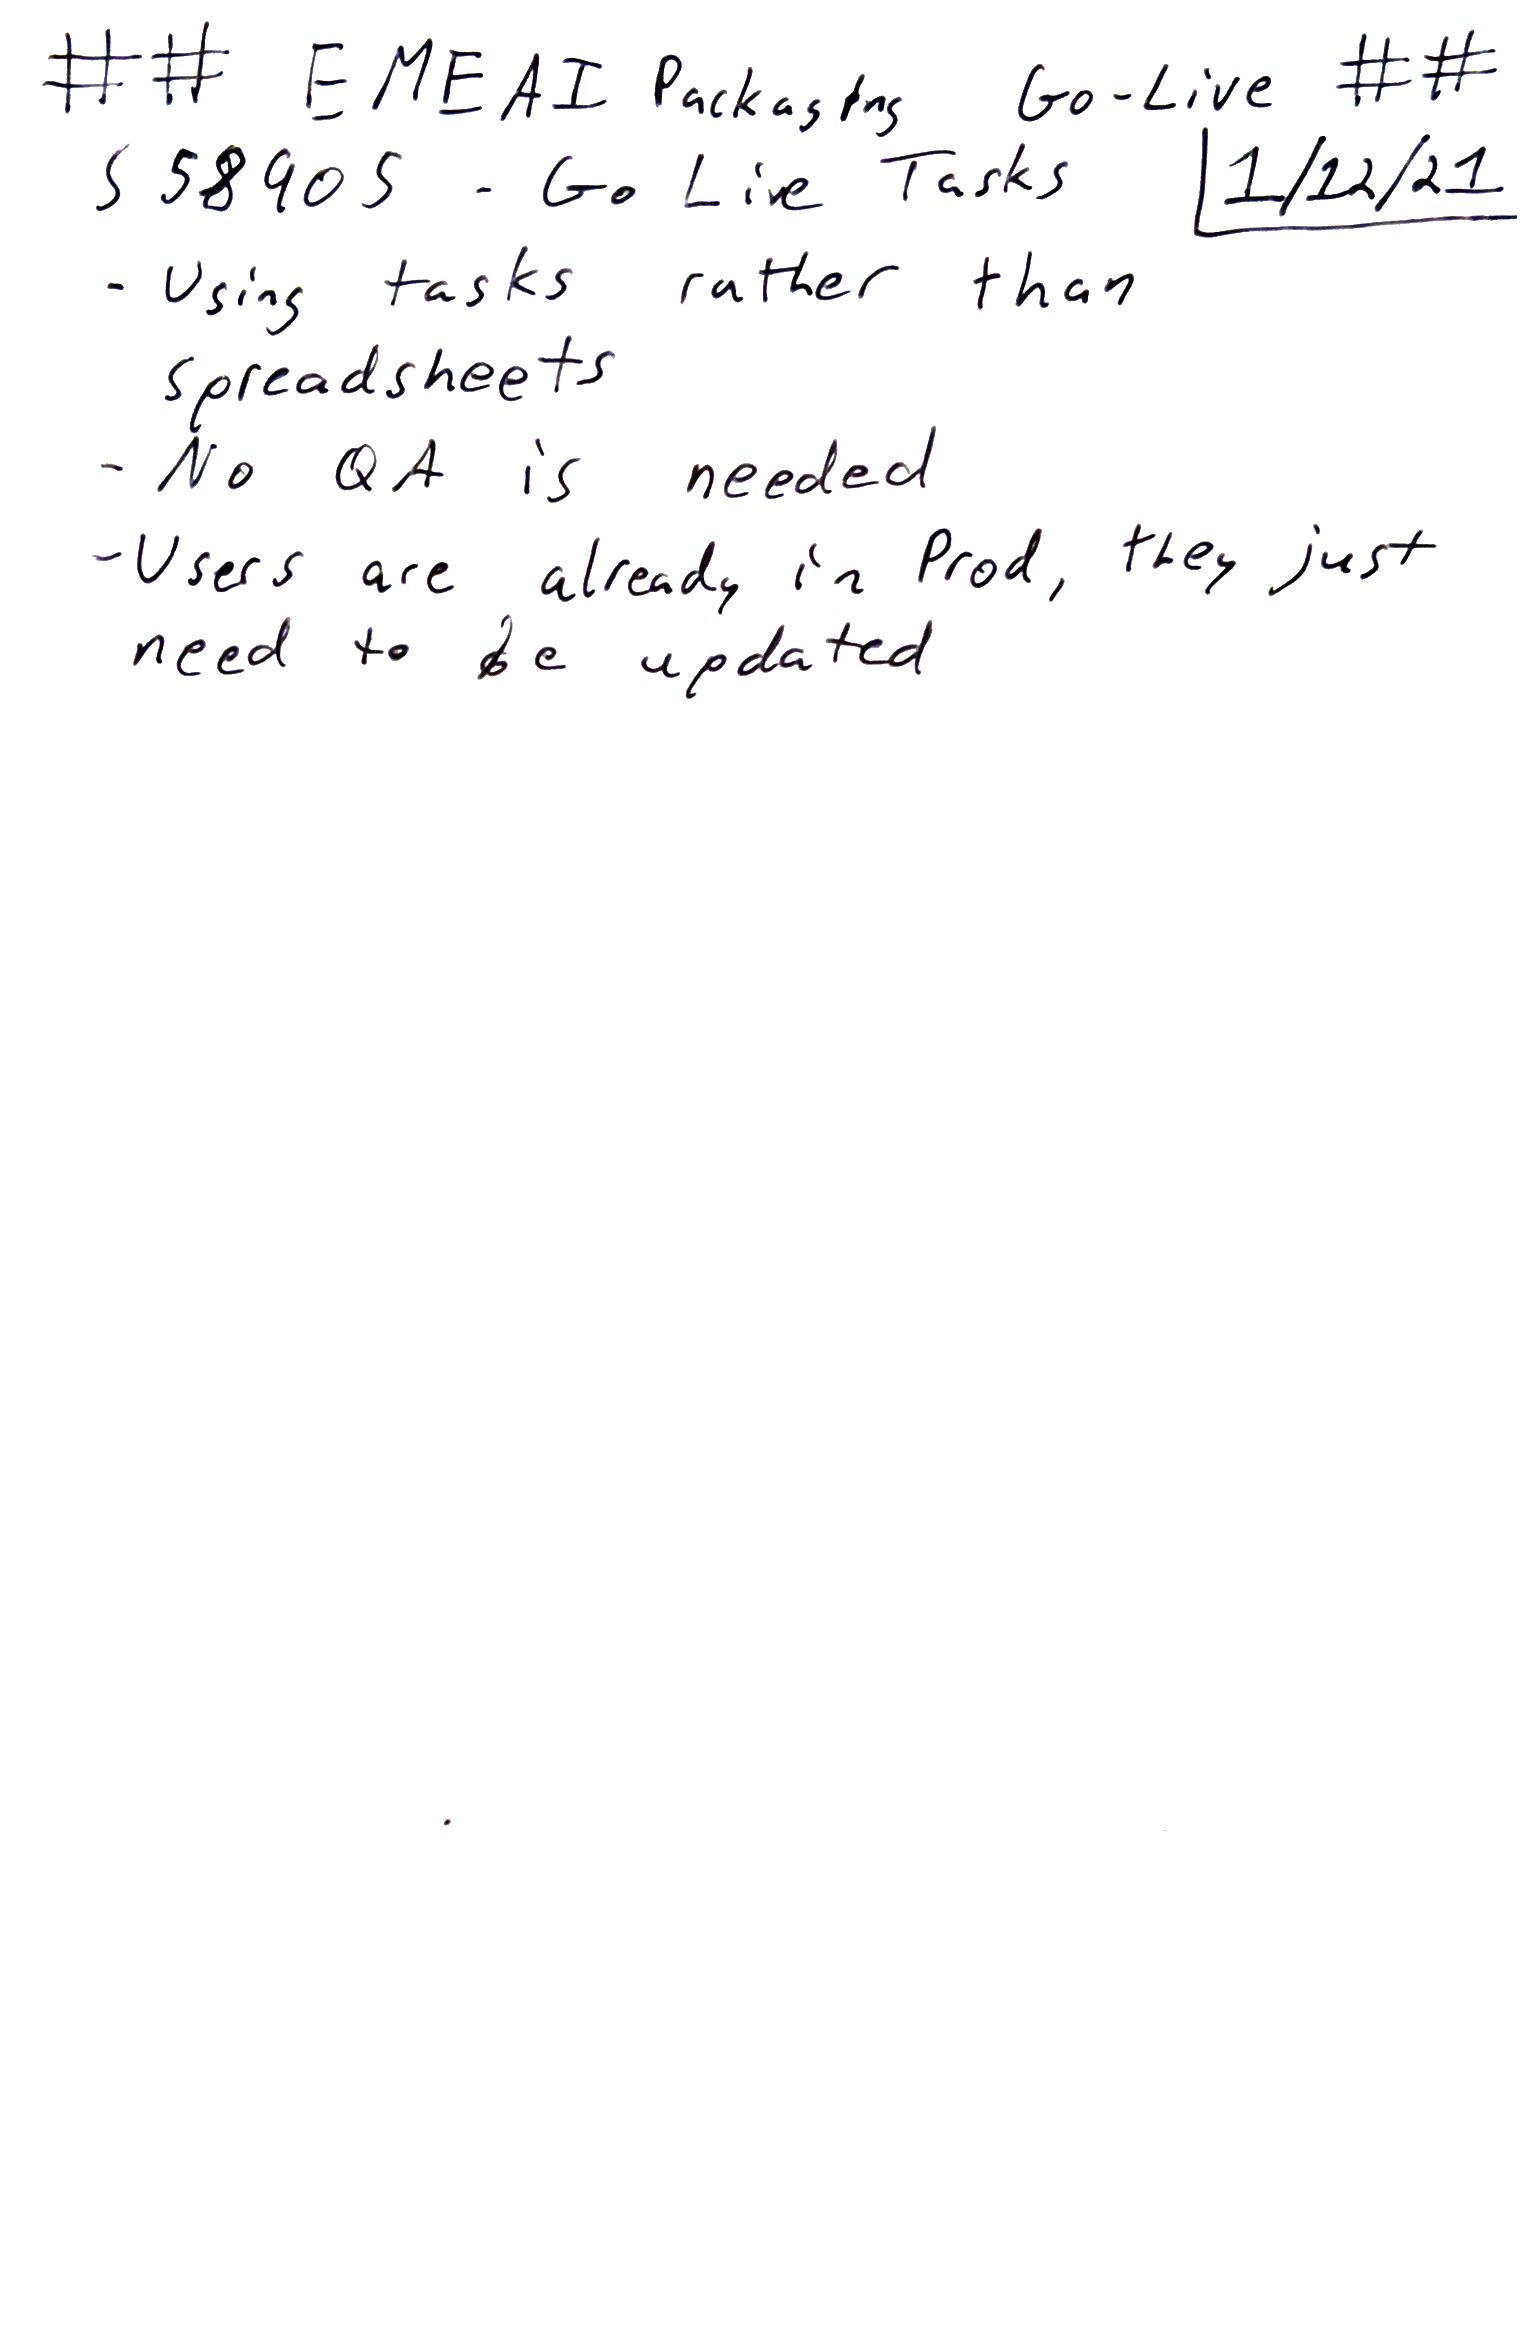 ## EMEAI Packaging Go-Live ##
S58905 - Go Live Tasks 1/12/21
- Using tasks rather than
spreadsheets
- No QA is needed
- Users are already in Prod, they just
need to be updated